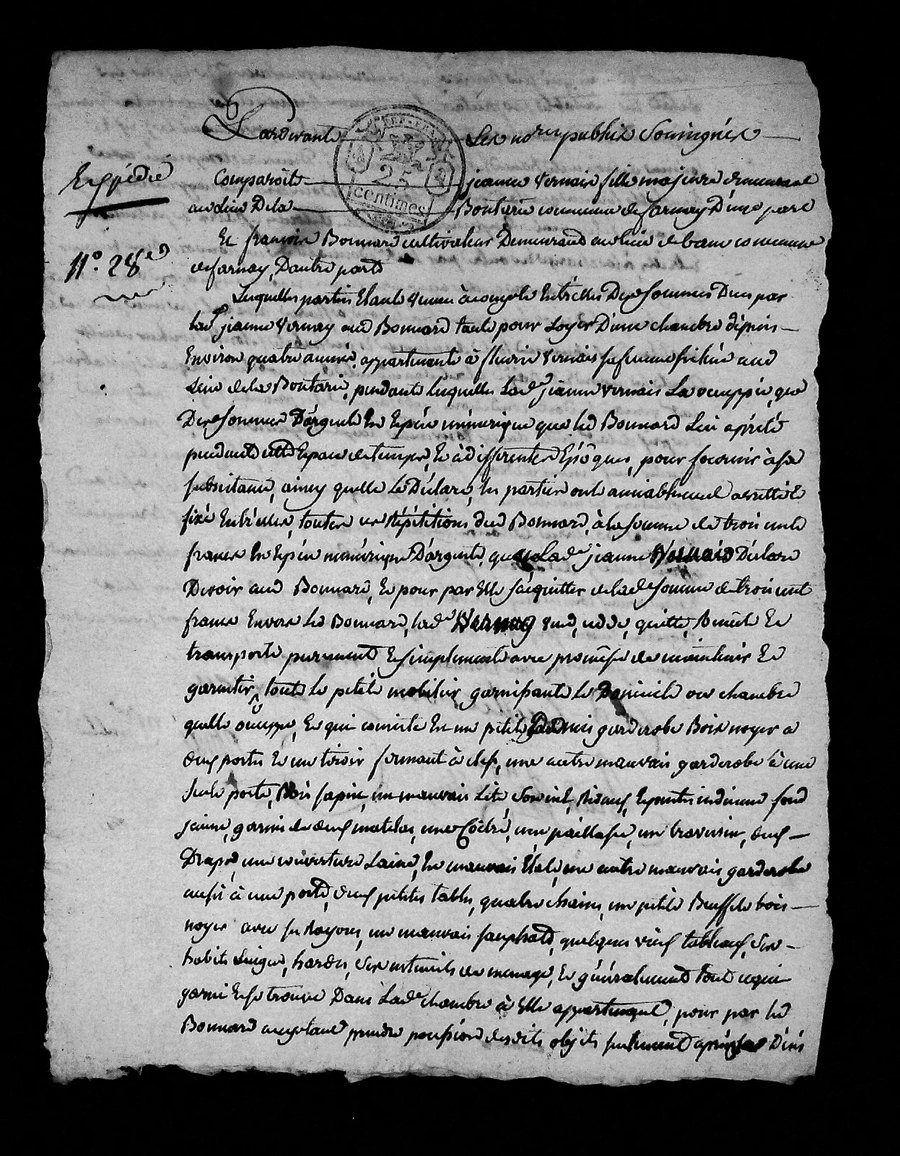 Pardevant Les no.res publix Soussignés
Expédié
Comparoit jeanne Vernais fille majeure demeurant
REP. FRA.
25
centimes
au lieu De la Boutarie commune de farnay D'une part
Et françois Bonnard cultivateur Demeurant au lieu de commune
N.° 28
de farnay, D'autre part
Lesquelles parties Etant venue à compte Entr'elles Des Sommes Dues par
lad.e jeanne Vernay aud Bonnard tant pour Loyer D'une chambre depuis
Environ quatre année, appartenante à fleurie Vernais sa femme située aud
Lieu de la Boutarie, pendant lesquelles lad.e jeanne Vernais La occuppée, que
Des Sommes D'argent En Espèce numérique que led Bonnard Lui a prêté
pendant cette Espace de temps, Et à differentes Epôques, pour fournir à sa
subsitance, ainsy quelle Le Déclare, Les parties ont amiablement arretté Et
fixé Entr'elles, toutes ces Répétitions dud Bonnard, à la somme de trois cents
francs En Espèce numérique D'argent, que lad.e jeanne Vernais Déclare
Devoir aud Bonnard, Et pour par Elle s'acquitter de lad.e Somme de trois cent
francs Envers led Bonnard, lad.e Vernay vend, cedde, quitte, Remet Et
transporte purement Et simplement avec promesse de maintenir Et
garentir, tout le petit mobilier garnissant le Domicile ou chambre
quelle occuppe, Et qui consiste En une petite garderobe Bois noyer a
deux portes Et un tiroir fermant à clef, une autre mauvais garderobe à une
seule porte, Bois sapin, un mauvais Lit indienne fond
jaune, garni de deux matelas, une une paillasse, un traversin, deux
Draps, une couverture Laine, En mauvais Etat, une autre mauvais garderobe
aussi à une porte, deux petites tables, quatre chaises, un petit Buffet bois
noyer avec ses Rayons, une mauvais quelques vieux tableaux, Ses
habits Linges, hardes, Ses ustensils de menage, Et généralement tout ce qui
garni Et se trouve Dans lad.e chambre à Elle appartenant, pour par led
Bonnard acceptant prendre possession desdits objets seulement après le Décès